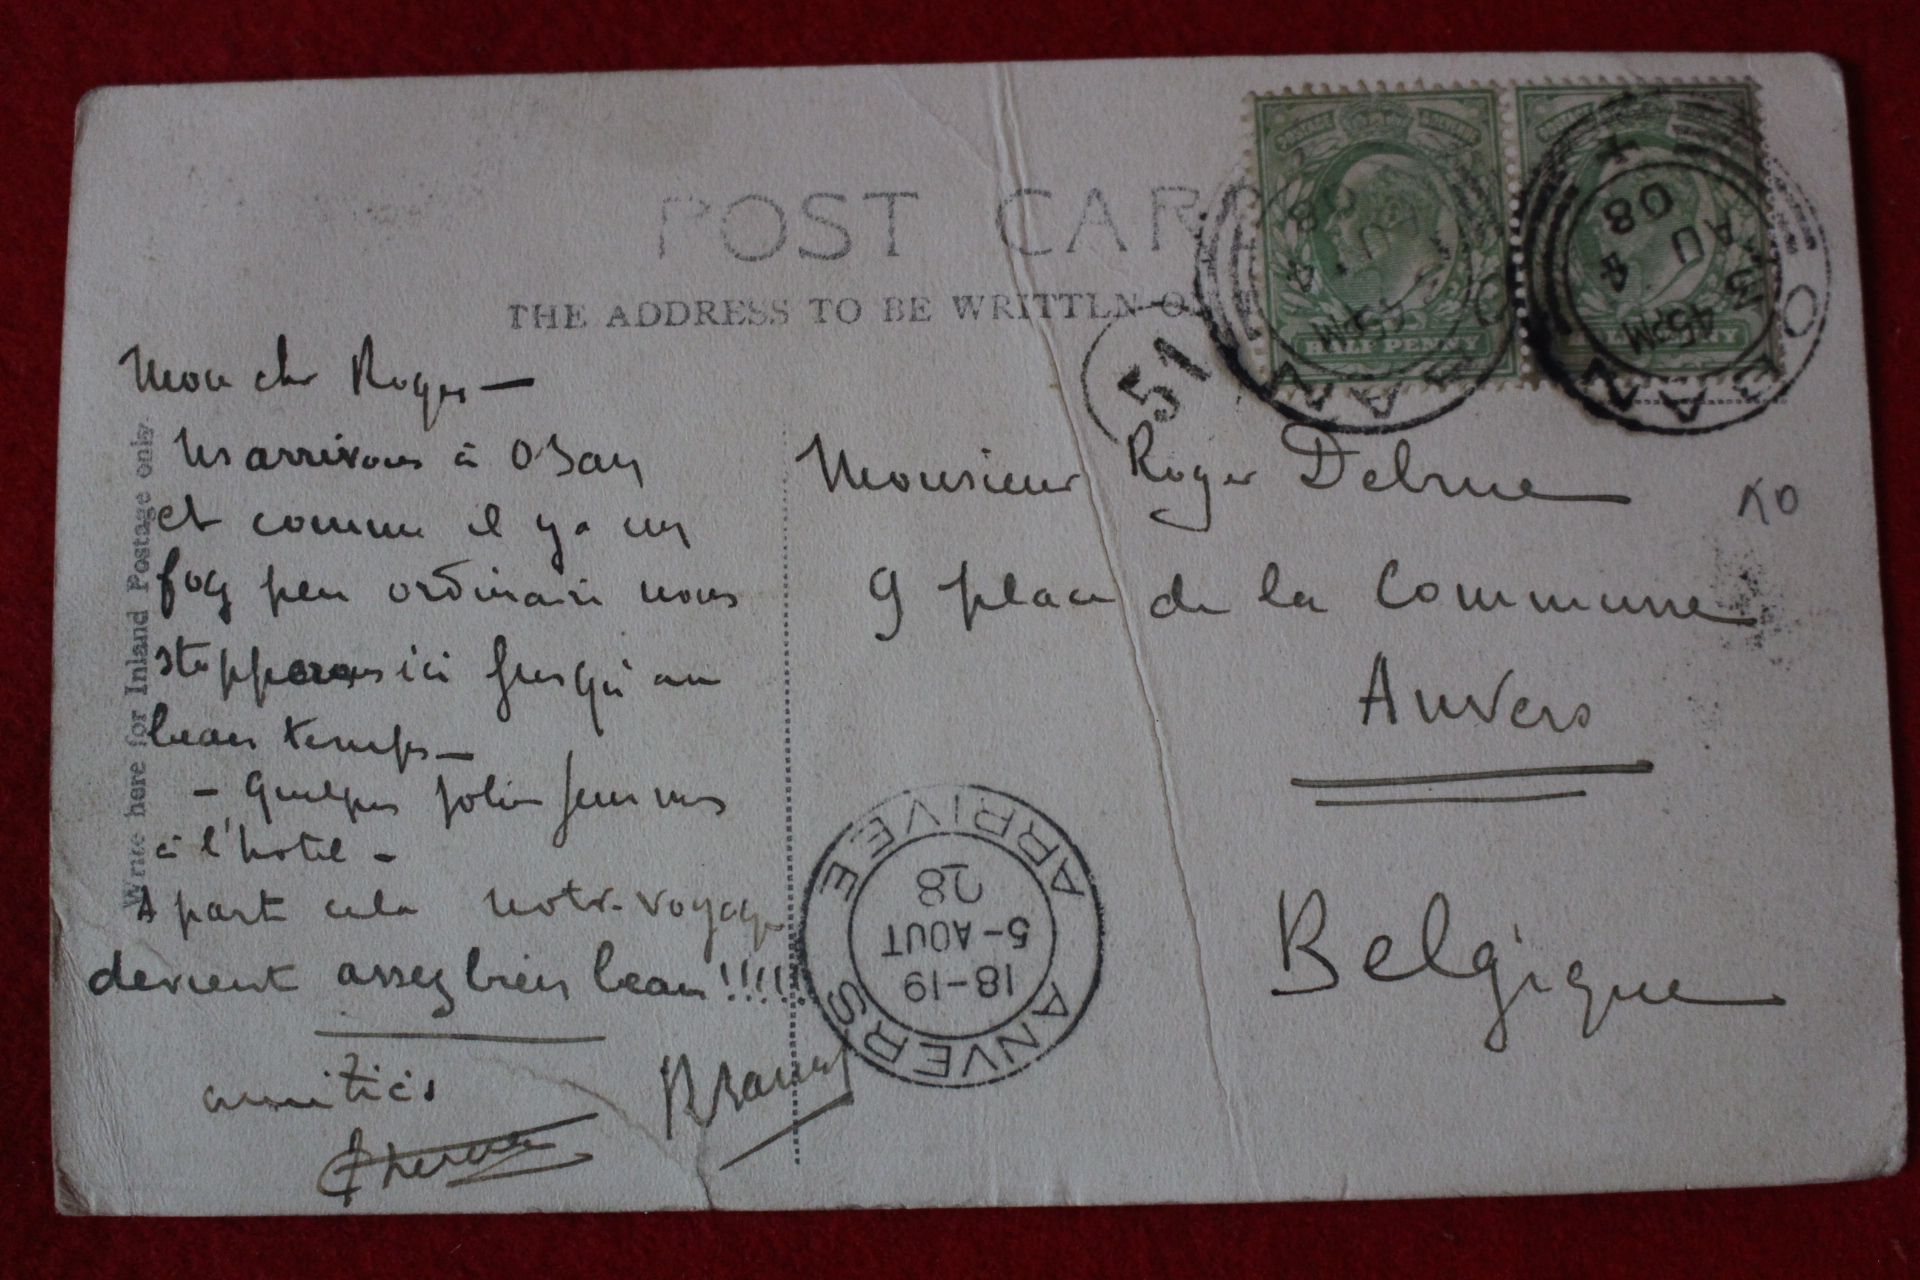 POST CAR
THE ADDRESS TO BE WRITTEN O
Write here for Inland Postage only
Mon cher Roger —
Ns arrivons à Oban
et comme il y a un
fog peu ordinaire nous
stopperons ici jusqu'au
beau temps —
— Quelques jolies femmes
à l'hotel —
A part cela notre voyage
devient assez bien beau !!!!!
amitiés
Monsieur Roger Delrue
9 place de la Commune
Anvers
Belgique
HALF PENNY
HALF PENNY
OBAN
45PM
AU 4
08
OBAN
45PM
AU 4
08
51
ANVERS ARRIVEE
18-19
5-AOUT
08